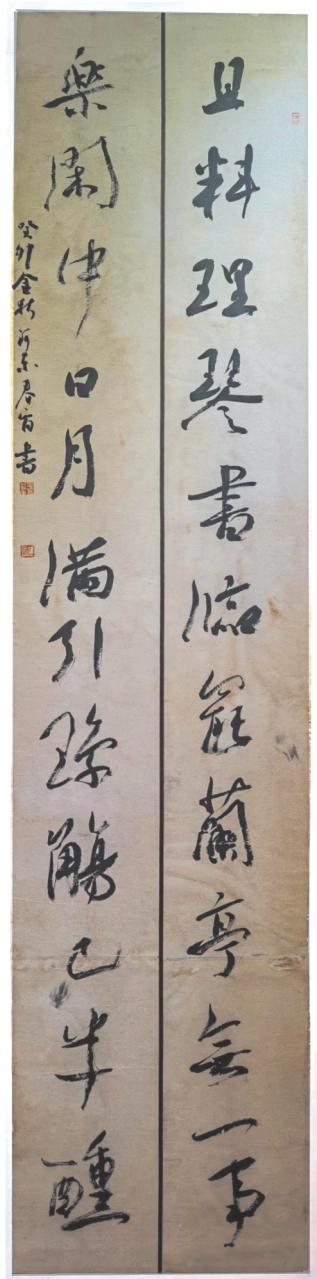 且料理琴書臨罷蘭亭無一事
樂閑中日月滿引瓊觴已半醺
癸卯金秋 春育書